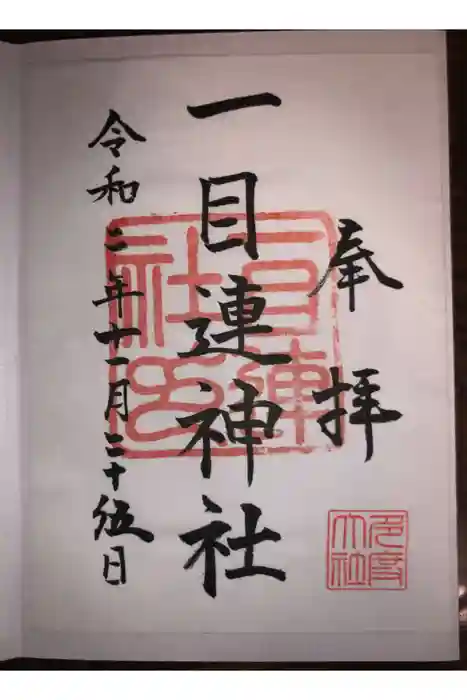 奉拝
一目連神社
令和二年十一月二十伍日
一目連
社印
多度
大社